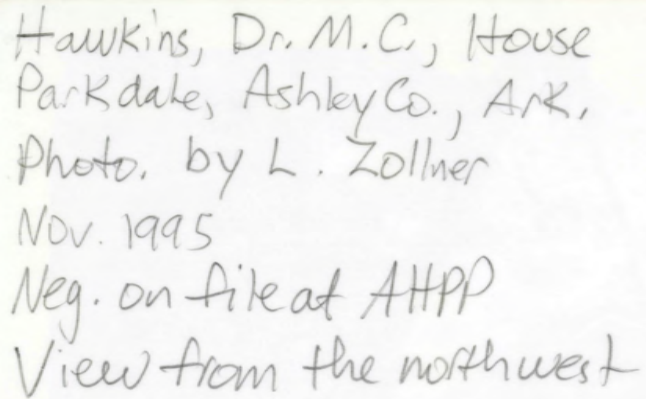 Hawkins, Dr. M.C., House
Parkdale, Ashley Co., Ark.
Photo. by L. Zollner
Nov. 1995
Neg. on file at AHPP
View from the northwest